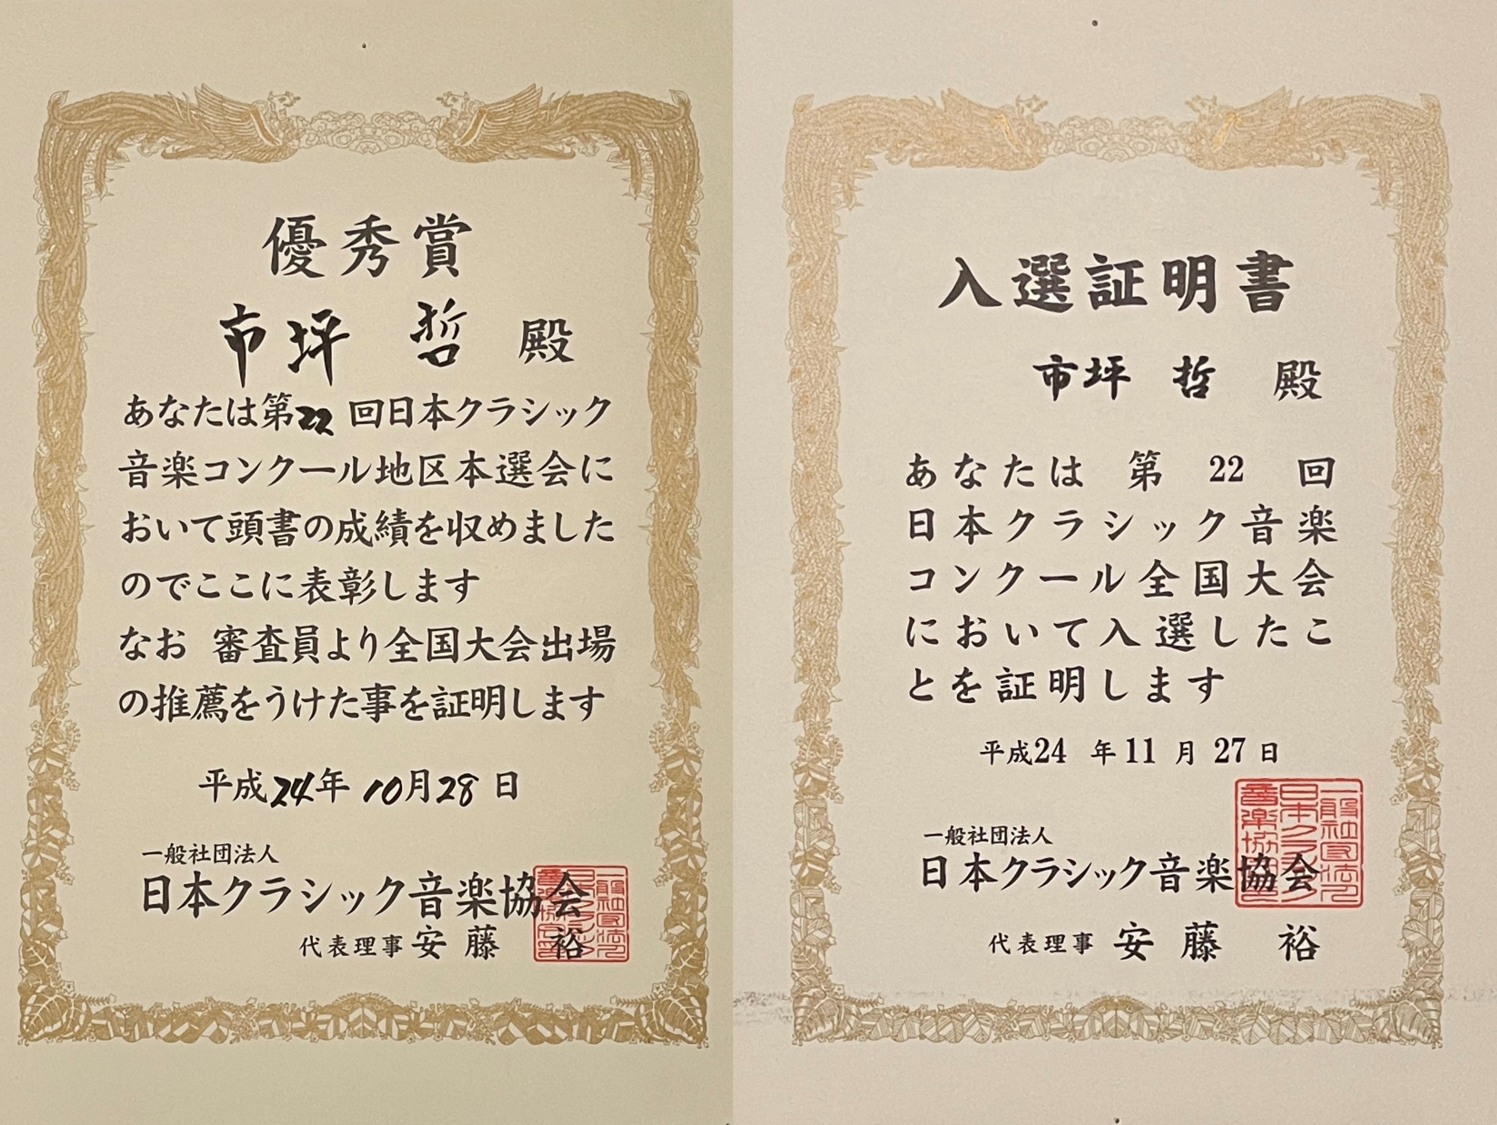 優秀賞
市坪 哲 殿
あなたは第22回日本クラシック
音楽コンクール地区本選会に
おいて頭書の成績を収めました
のでここに表彰します
なお 審査員より全国大会出場
の推薦をうけた事を証明します
平成24年10月28日
一般社団法人
日本クラシック音楽協会
代表理事 安藤 裕
入選証明書
市坪 哲 殿
あなたは 第 22 回
日本クラシック音楽
コンクール全国大会
において入選したこ
とを証明します
平成24 年 11 月 27 日
一般社団法人
日本クラシック音楽協会
代表理事 安藤 裕